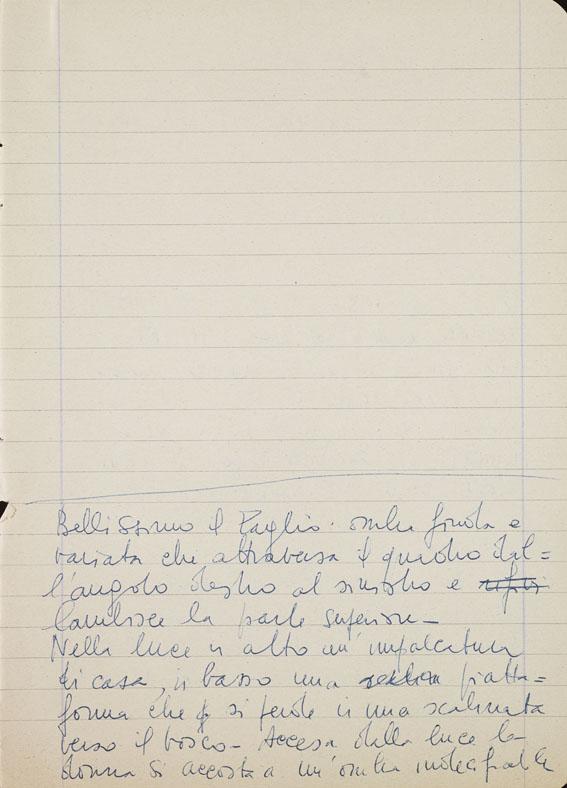 Bellissimo il taglio. ombra fonda e
variata che attraversa il quadro dal=
l'angolo destro al sinistro e
lambisce la parte superiore -
Nella luce in alto un'impalcatura
di casa, in basso una piatta=
forma che si perde in una scalinata
verso il bosco - Accesa dalla luce la
donna si accosta a un'ombra indecifrabile